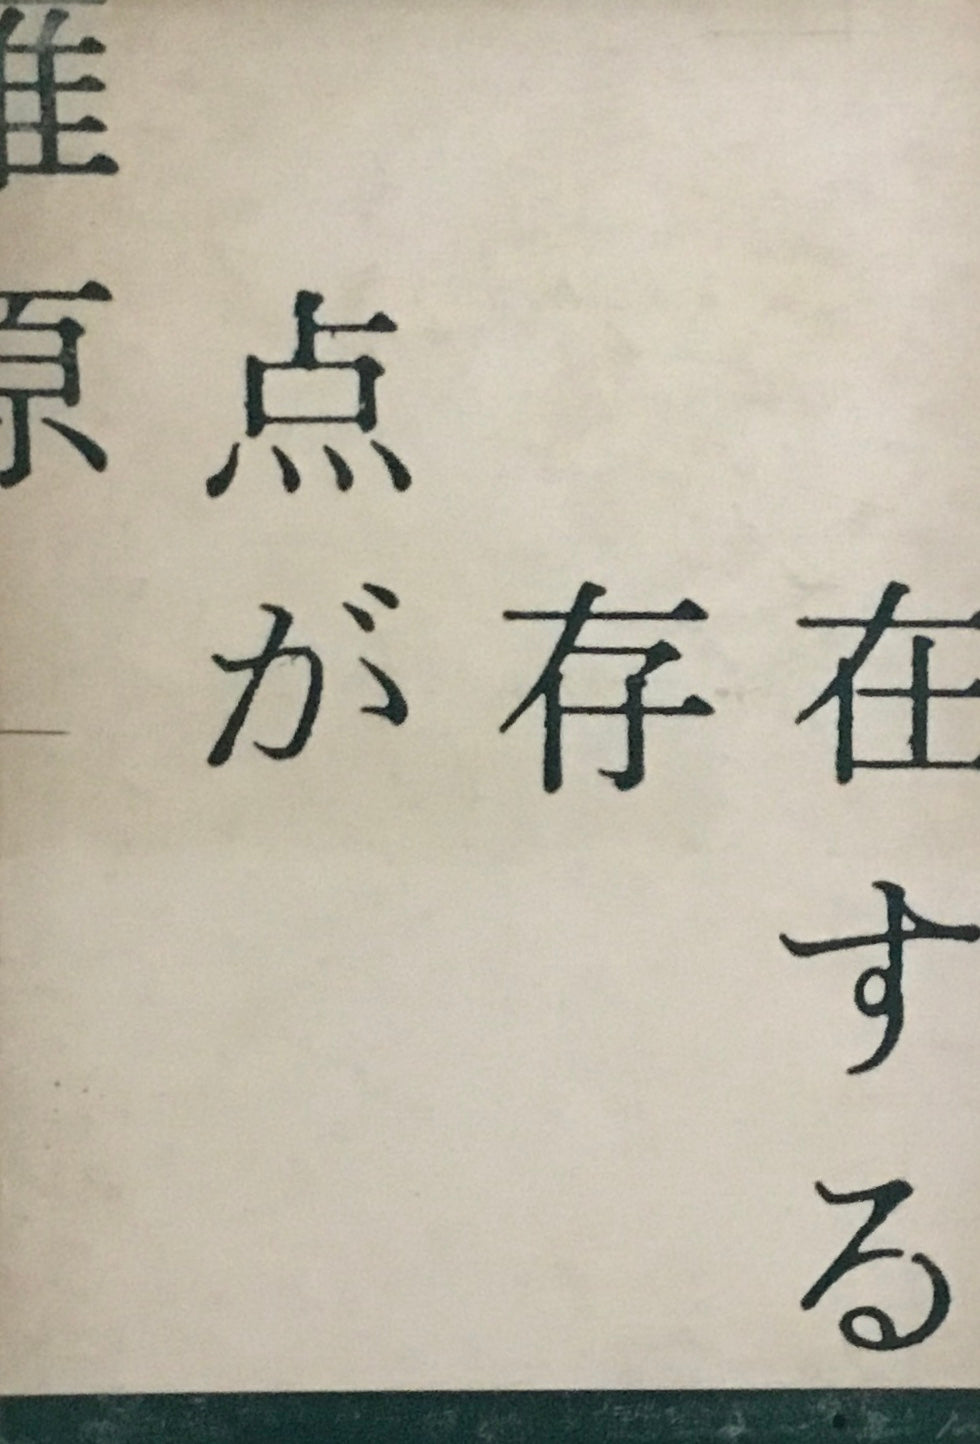 雁
原点
が存在
す
る